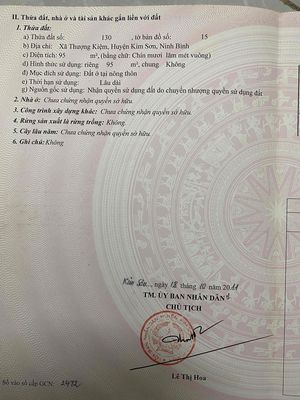 II. Thửa đất, nhà ở và tài sản khác gắn liền với đất
1. Thửa đất:
a) Thửa đất số: 130 , tờ bản đồ số: 15
b) Địa chỉ: Xã Thượng Kiệm, Huyện Kim Sơn, Ninh Bình
c) Diện tích: 95 m², (bằng chữ: Chín mươi lăm mét vuông)
d) Hình thức sử dụng: riêng 95 m², chung Không
đ) Mục đích sử dụng: Đất ở tại nông thôn
e) Thời hạn sử dụng: Lâu dài
g) Nguồn gốc sử dụng: Nhận quyền sử dụng đất do chuyển nhượng quyền sử dụng đất
2. Nhà ở: Chưa chứng nhận quyền sở hữu.
3. Công trình xây dựng khác: Chưa chứng nhận quyền sở hữu.
4. Rừng sản xuất là rừng trồng: Không.
5. Cây lâu năm: Chưa chứng nhận quyền sở hữu.
6. Ghi chú: Không
Kim Sơn, ngày 18 tháng 10 năm 2011
TM. ỦY BAN NHÂN DÂN
CHỦ TỊCH
Lê Thị Hoa
Số vào sổ cấp GCN: 2472